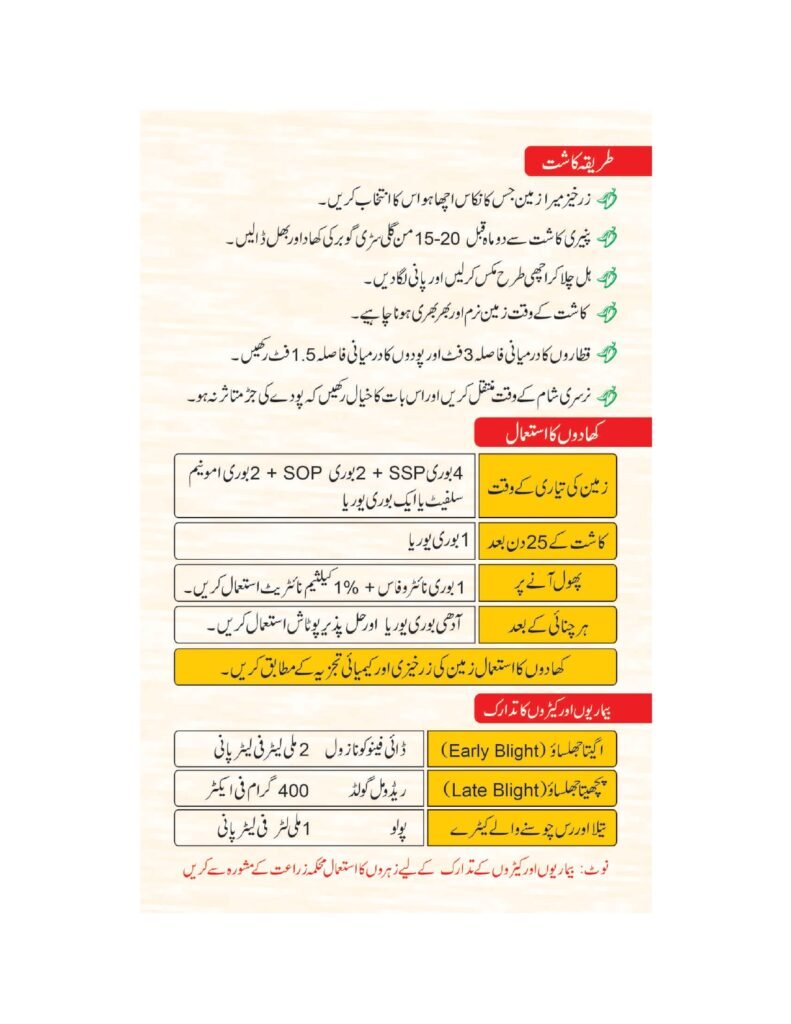 طریقہ کاشت
زرخیز میرا زمین جس کا نکاس اچھا ہو اس کا انتخاب کریں۔
پنیری کاشت سے دو ماہ قبل 20-15 من گلی سڑی گوبر کی کھاد اور بھل ڈالیں۔
ہل چلا کر اچھی طرح مکس کر لیں اور پانی لگا دیں۔
کاشت کے وقت زمین نرم اور بھر بھری ہونا چاہیے۔
قطاروں کا درمیانی فاصلہ 3 فٹ اور پودوں کا درمیانی فاصلہ 1.5 فٹ رکھیں۔
نرسری شام کے وقت منتقل کریں اور اس بات کا خیال رکھیں کہ پودے کی جڑ متاثر نہ ہو۔
کھادوں کا استعمال
زمین کی تیاری کے وقت
4 بوری SSP + 2 بوری SOP + 2 بوری امونیم
سلفیٹ یا ایک بوری یوریا
کاشت کے 25 دن بعد
1 بوری یوریا
پھول آنے پر
1 بوری نائٹروفاس + 1% کیلشیم نائٹریٹ استعمال کریں۔
ہر چنائی کے بعد
آدھی بوری یوریا اور حل پذیر پوٹاش استعمال کریں۔
کھادوں کا استعمال زمین کی زرخیزی اور کیمیائی تجزیہ کے مطابق کریں۔
بیماریوں اور کیڑوں کا تدارک
اگیتا جھلساؤ (Early Blight)
ڈائی فینوکونازول 2 ملی لیٹر فی لیٹر پانی
پچھیتا جھلساؤ (Late Blight)
ریڈومل گولڈ 400 گرام فی ایکٹر
تیلا اور رس چوسنے والے کیٹرے
پولو 1 ملی لٹر فی لیٹر پانی
نوٹ: بیماریوں اور کیڑوں کے تدارک کے لیے زہروں کا استعمال محکمہ زراعت کے مشورہ سے کریں